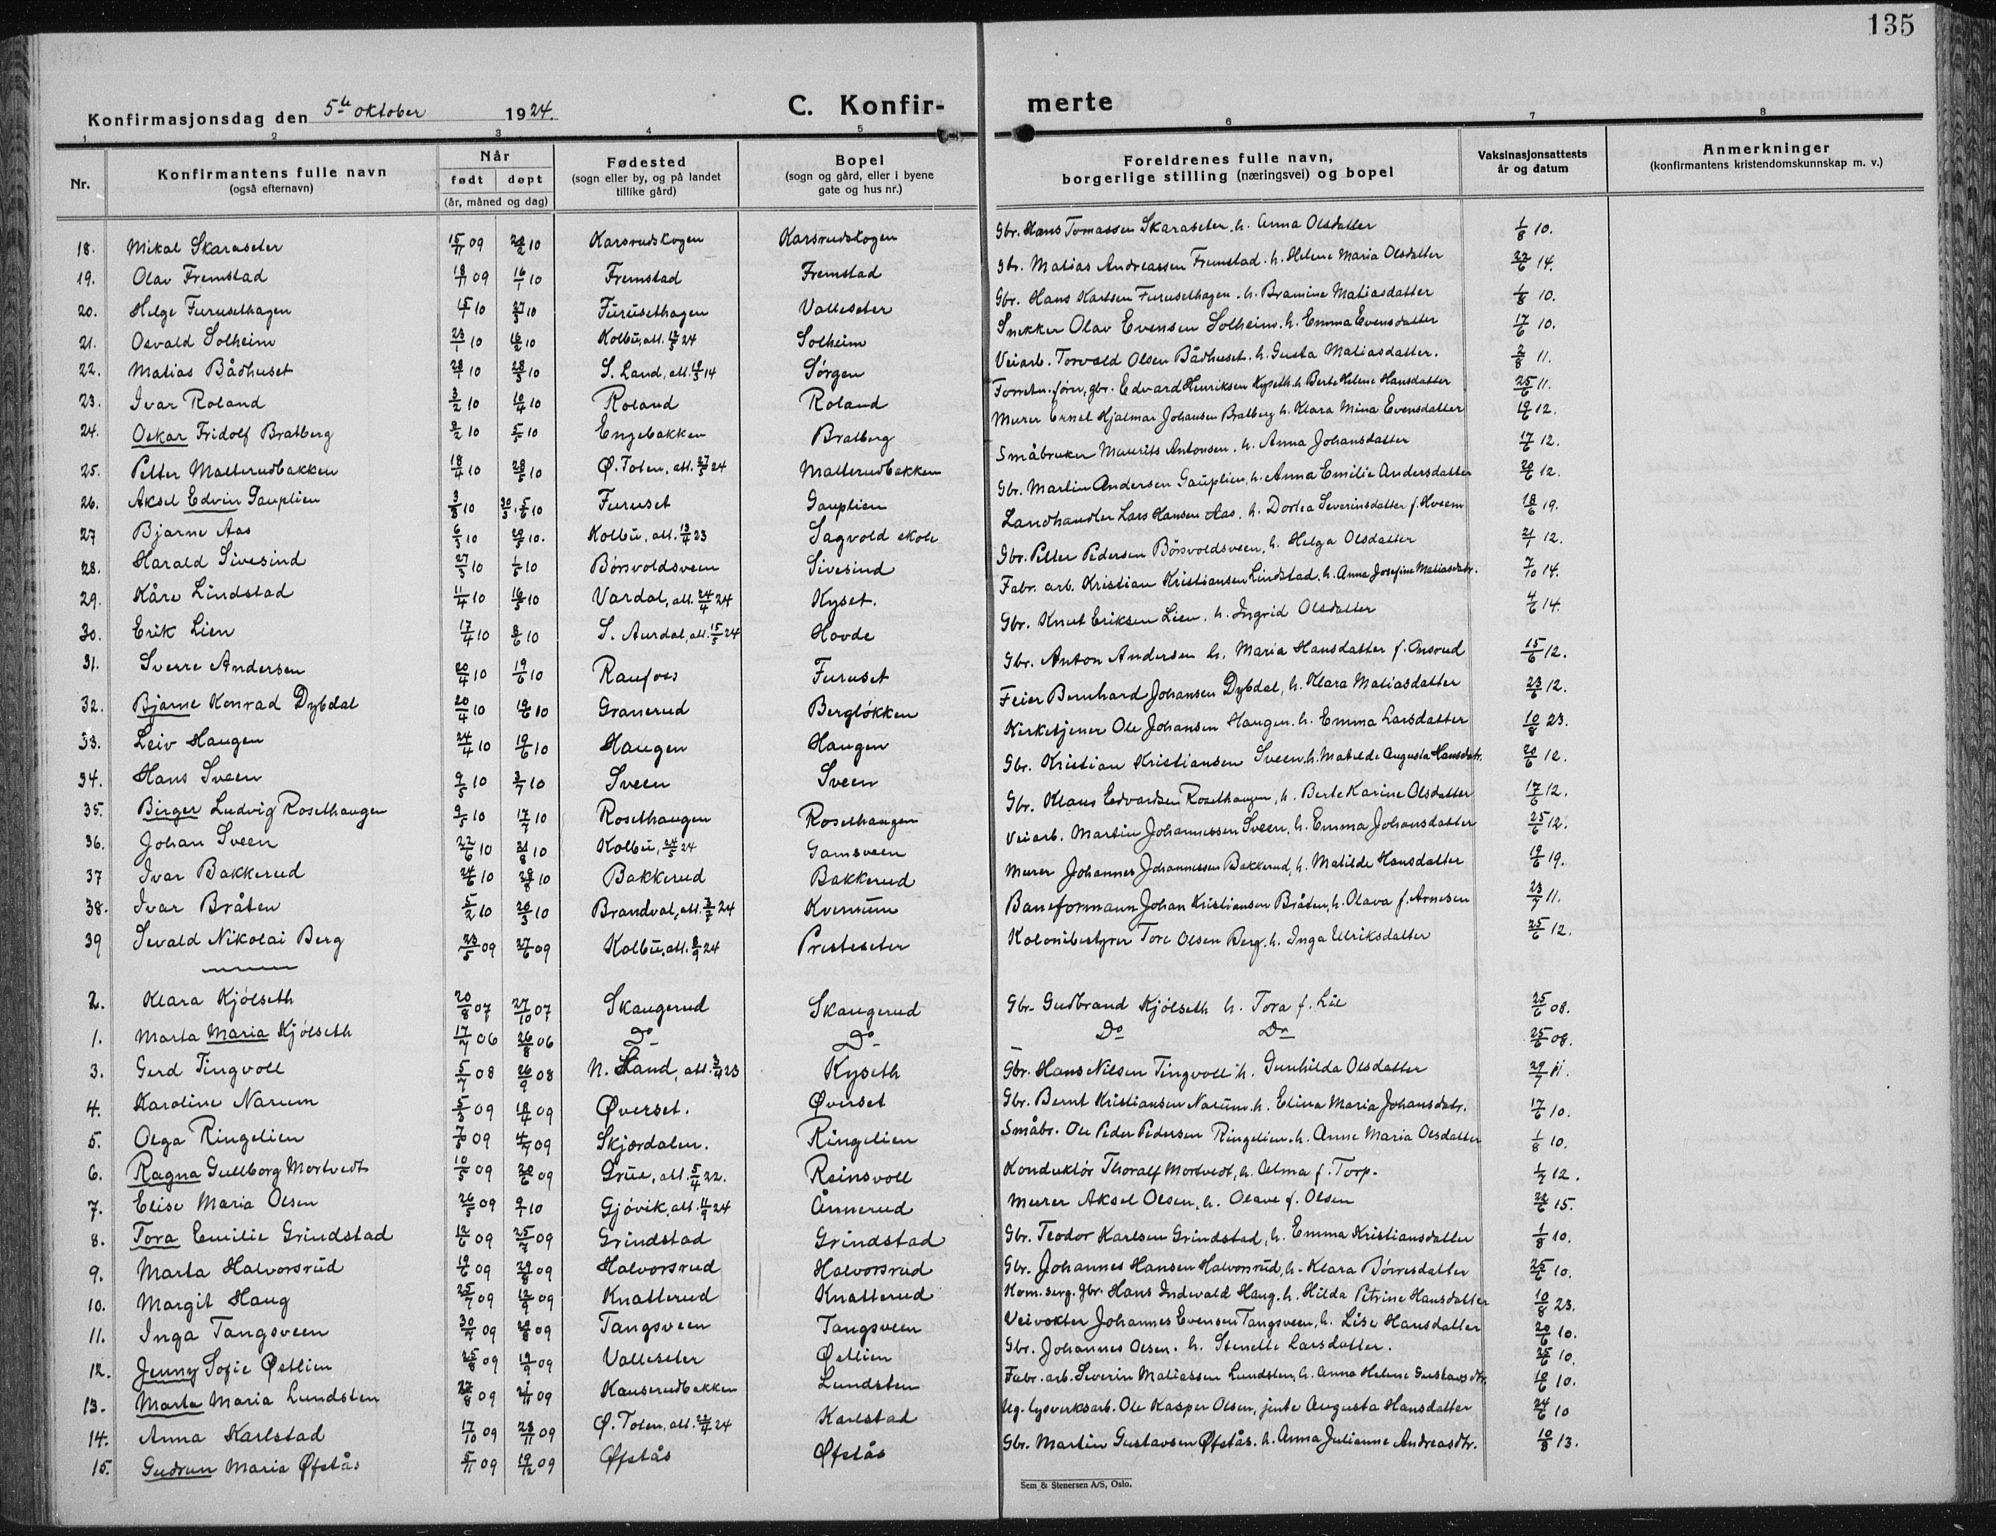 135
Konfirmasjonsdag den 5te oktober 1924.
C. Konfir-merte
1 2 3 4 5 6 7 8
Nr. | Konfirmantens fulle navn (også efternavn) | Når født | døpt (år, måned og dag) | Fødested (sogn eller by, og på landet tillike gård) | Bopel (sogn og gård, eller i byene gate og hus nr.) | Foreldrenes fulle navn, borgerlige stilling (næringsvei) og bopel | Vaksinasjonsattests år og datum | Anmerkninger (konfirmantens kristendomskunnskap m. v.)
18. Mikal Skaraseter 15/11 09 20/2 10 Karsrudskogen Karsrudskogen Gbr. Hans Tomassen Skaraseter. h. Anna Olsdatter 1/8 10.
19. Olav Fremstad 18/11 09 16/1 10 Fremstad Fremstad Gbr. Matias Andreassen Fremstad. h. Helene Maria Olsdatter 14.
20. Helge Furusethagen 10 27/3 10 Furusethagen Valleseter Gbr. Hans Karlsen Furusethagen. h. Bramine Matiasdatter 1/8 10.
21. Osvald Solheim 23/1 10 16/2 10 Kolbu, att. 24 Solheim Snekker Olav Evensen Solheim. h. Emma Evensdatter 17/6 10.
22. Matias Bådhuset 28/1 10 28/3 10 S. Land, att. 14 Sørgen Veiarb. Torvald Olsen Bådhuset. h. Gusta Matiasdatter. 2/8 11.
23. Ivar Roland 3/2 10 10/4 10 Roland Roland Forretn.fører, gbr. Edvard Henriksen Kyseth. h. Berte Helene Hansdatter 25/6 11.
24. Oskar Fridolf Bratberg 9/2 10 5/5 10 Engebakken Bratberg Murer Ernst Hjalmar Johansen Bratberg h. Klara Mina Evensdatter 19/6 12.
25. Petter Malterudbakken 18/4 10 28/6 10 Ø. Toten, att. 27/5 24 Malterudbakken Småbruker Maurits Antonsen. h. Anna Johansdatter 17/6 12.
26. Aksel Edvin Gauplien 3/3 10 5/6 10 Furuset Gauplien Gbr. Martin Andersen Gauplien, h. Anna Emilie Andersdatter 20/6 12.
27 Bjarne Aas 6/3 10 10. Kolbu, att. 13/4 23 Sagvold skole Landhandler Lars Hansen Aas. h. Dortea Severinsdatter f. Hveem 18/6 19.
28. Harald Sivesind 27/3 10 1/6 10 Børsvoldsveen Sivesind Gbr. Petter Pedersen Børsvoldsveen, h. Helga Olsdatter 21/1 12.
29. Kåre Lindstad 11/4 10 16/5 10 Vardal, att. 24/4 24 Kyset. Fabr. arb. Kristian Kristiansen Lindstad. h. Anna Josefine Matiasdtr. 7/10 14.
30. Erik Lien 17/4 10 8/6 10 S. Aurdal, att. 15/5 24 Hovde Gbr. Knut Eriksen Lien. h. Ingrid Olsdatter 4/6 14.
31. Sverre Andersen 20/4 10 19/6 10 Raufoss Furuset Gbr. Anton Andersen h. Maria Hansdatter f. Onsrud 15/6 12.
32. Bjarne Konrad Dybdal 20/4 10 19/6 10 Granerud Bergløkken Feier Bernhard Johansen Dybdal, h. Klara Matiasdatter 23/6 12.
33. Leiv Haugen 24/4 10 19/6 10 Haugen Haugen Kirketjener Ole Johansen Haugen. h. Emma Larsdatter 10/8 23.
34. Hans Sveen 9/5 10 3/7 10 Sveen Sveen Gbr. Kristian Kristiansen Sveen. h. Matilde Augusta Hansdtr. 20/6 12.
35. Birger Ludvig Roselhaugen 9/5 10 17/7 10 Roselhaugen Roselhaugen Gbr. Klaus Edvardsen Roselhaugen, h. Berte Karine Olsdatter 17/6 12.
36. Johan Sveen 22/6 10 21/8 10 Kolbu, 24/5 24 Gamsveen Veiarb. Martin Johannessen Sveen, h. Emma Johansdatter 25/6 12.
37 Ivar Bakkerud 24/6 10 28/8 10 Bakkerud Bakkerud Murer Johannes Johannessen Bakkerud, h. Matilde Hansdatter 19/6 19.
38. Ivar Bråten 5/2 10 20/3 10 Brandval, att. 24 Kvernum Baneformann Johan Kristiansen Bråten, h. Olava f. Arnesen 23/7 11.
39 Sevald Nikolai Berg 23/5 09 27/6 09 Kolbu, att. 8/9 24 Presteseter Kolonibestyrer Tore Olsen Berg. h. Inga Ulriksdatter 25/6 12.
2. Klara Kjölseth 20/8 07 27/10 07 Skaugerud Skaugerud Gbr. Gudbrand Kjölseth h. Tora f. Lie 25/6 08.
1. Marta Maria Kjölseth 17/7 06 26/8 06 Do Do Do Do 25/6 08.
3. Gerd Tingvoll 5/7 08 26/9 08 N. Land, att. 3/4 23 Kyseth Gbr. Hans Nilsen Tingvoll h. Gunhilda Olsdatter 29/7 11.
4. Karoline Narum 5/3 09 18/4 09 Øverset. Øverset Gbr. Bernt Kristiansen Narum. h. Elina Maria Johansdtr. 17/6 10.
5. Olga Ringelien 7/6 09 4/7 09 Skjærdalen. Ringelien Småbr. Ole Peder Pedersen Ringelien. h. Anne Maria Olsdatter 1/8 10.
6. Ragna Gullborg Mortvedt 10/5 09 20/6 09 Grue, att. 5/4 22. Reinsvoll Konduktör Thoralf Mortvedt, h. Alma f. Torp. 1/7 12.
7. Elise Maria Olsen 26/5 09 9/1 10 Gjövik, att. 11/9 24 Ånnerud Murer Aksel Olsen, h. Olave f. Olsen 15.
8. Tora Emilie Grindstad 12/6 09 25/7 09 Grindstad Grindstad Gbr. Teodor Karlsen Grindstad, h. Emma Kristiansdatter 1/8 10.
9. Marta Halvorsrud 19/6 09 29/8 09 Halvorsrud Halvorsrud Gbr. Johannes Hansen Halvorsrud, h. Klara Börresdatter 25/6 10.
10. Margit Haug 25/7 09 12/9 09 Knatterud Knatterud Kom. serg. Gbr. Hans Indevald Haug. h. Hilda Petrine Hansdatter 10/8 23.
11. Inga Tangsveen 30/7 09 29/8 09 Tangsveen Tangsveen Veivokter Johannes Evensen Tangsveen, h. Lise Hansdatter 20/6 10.
12. Jenny Sofie Østlien 25/8 09 19/9 09 Valleseter Østlien Gbr. Johannes Olsen. h. Stenette Larsdatter. 25/6 10.
13. Marta Maria Lundsten 27/8 09 09 Kauserudbakken Lundsten Fabr. arb. Severin Matiassen Lundsten, h. Anna Helene Gustavsdtr. 10/6 10.
14. Anna Karlstad 17/10 09 28/11 09 Ø. Toten, att. 24 Karlstad Ug. lysverksarb. Ole Kasper Olsen, jente Augusta Hansdatter 24/6 10
15. Gudrun Maria Øfstås 5/11 09 19/12 09 Øfstås Øfstås Gbr. Martin Gustavsen Øfstås. h. Anna Julianne Andreasdtr. 10/8 13.
Sem & Stenersen A/S, Oslo.